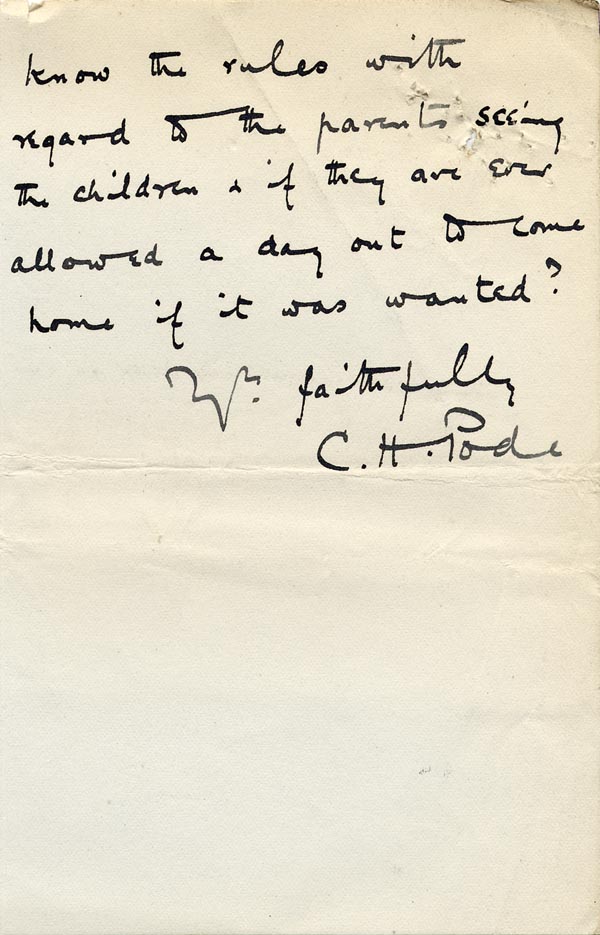 know the rules with
regard to the parents seeing
the children & if they are ever
allowed a day out to come
home if it was wanted?
Yrs. faithfully
C. H. Pode